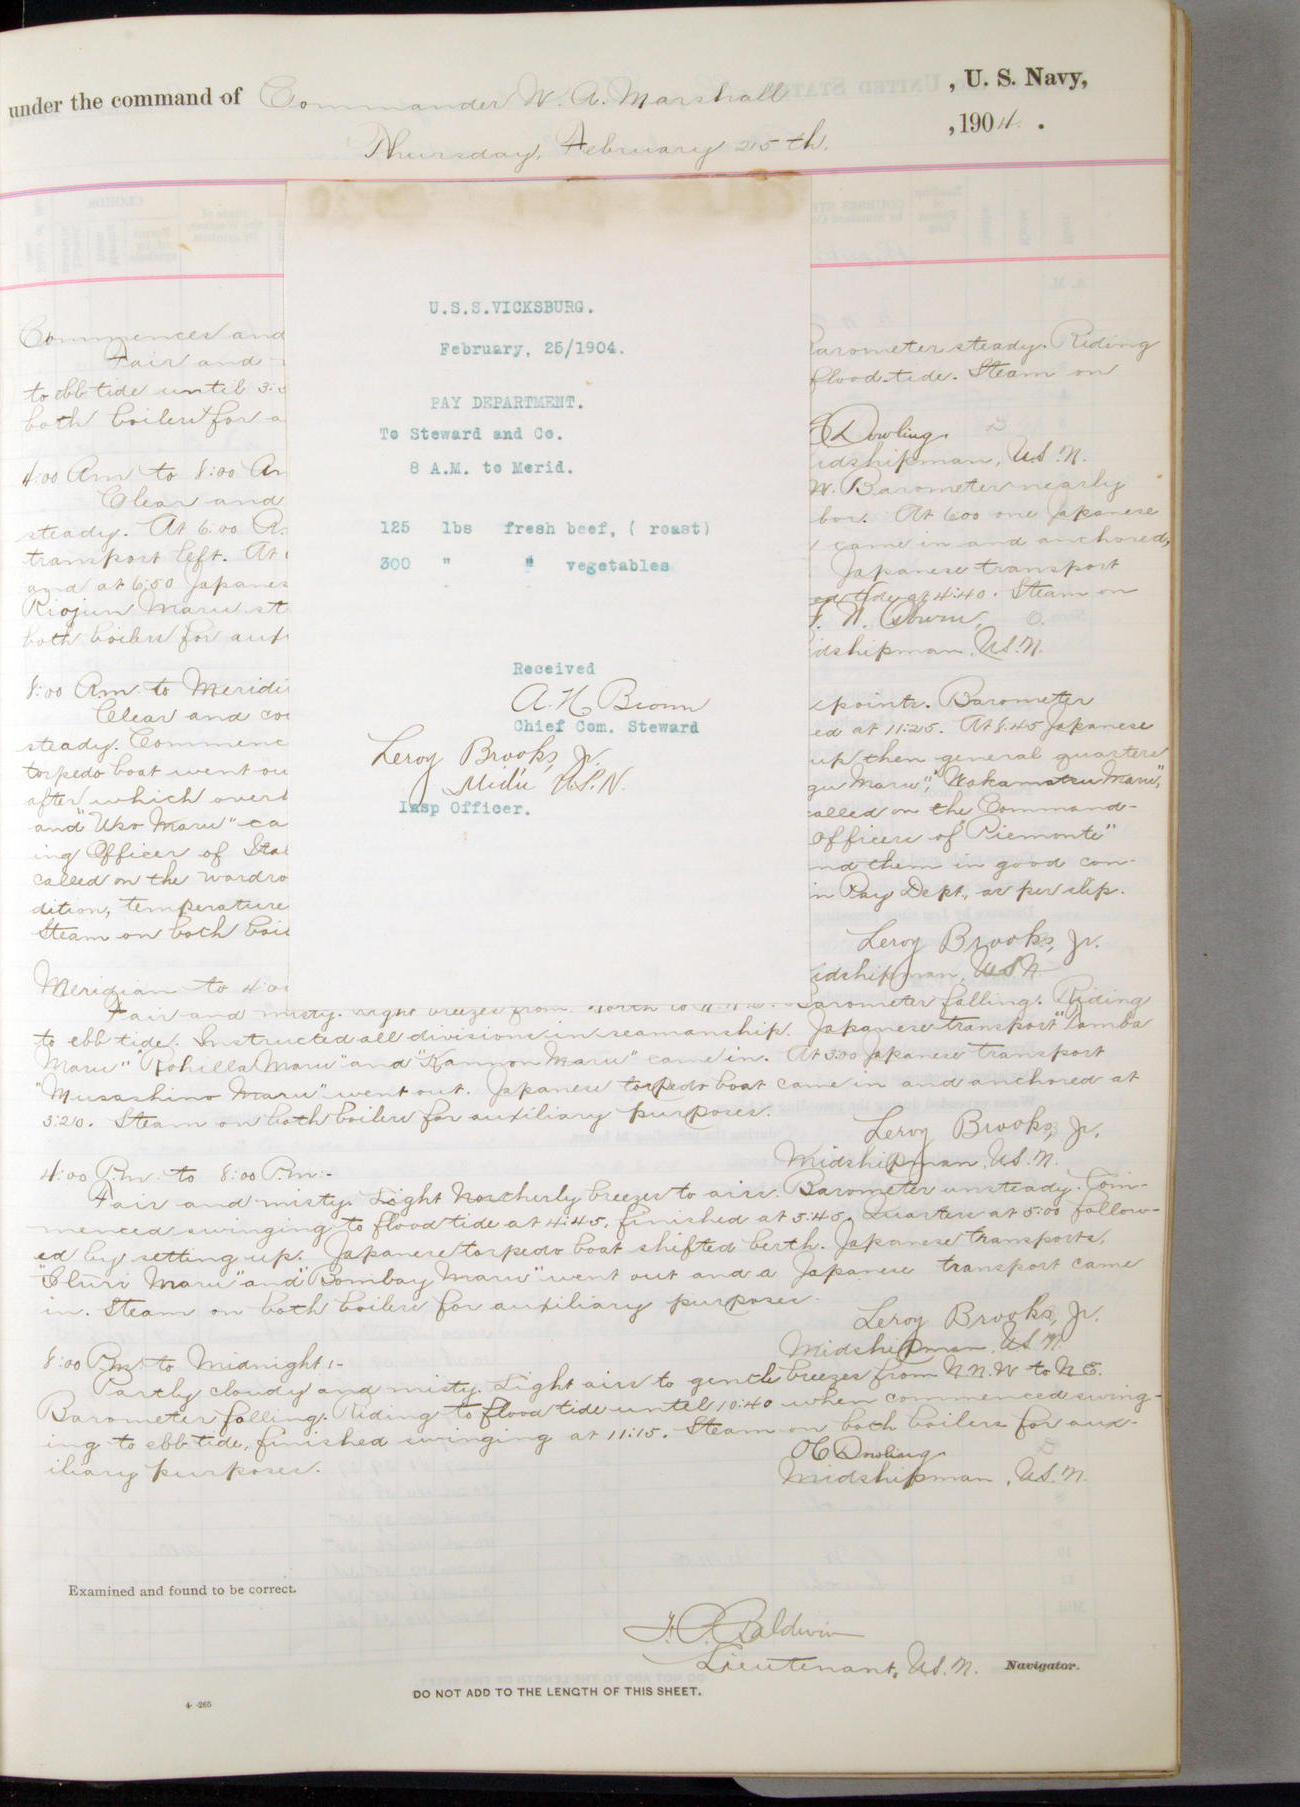 under the command of Commander W. A. Marshall, U. S. Navy,
Thursday, February 25th, 1904.
U.S.S.VICKSBURG.
February, 25/1904.
PAY DEPARTMENT.
To Steward and Co.
8 A.M. to Merid.
125 lbs fresh beef, ( roast)
300 " " vegetables
Received
A. H. Brown
Chief Com. Steward
Leroy Brooks, Jr.
Mid'n U.S.N.
Insp Officer.
Commences and
Fair and Barometer steady. Riding
to ebb tide until flood tide. Steam on
both boilers for a
Dowling
idshipman, U.S.N.
4:00 Am to 8:00 Am
Clear and W. Barometer nearly
steady. At 6:00 A. bor. At 600 one Japanese
transport left. At came in and anchored,
and at 6:50 Japanes Japanese transport
Riojun Maru st ed tide at 4:40. Steam on
both boilers for aux
idshipman, U.S.N.
8:00 Am to Meridi
Clear and coo points. Barometer
steady. Commenc ed at 11:25. At 8.45 Japanese
torpedo boat went ou up then general quarters
after which overb gu Maru", "Wakamatsu Maru",
and "Uso Maru" ca called on the Command-
ing Officer of Sta Officers of "Piemonte"
called on the wardro nd them in good con-
dition, temperature in Pay Dept., as per slip.
Steam on both boil
Leroy Brooks, Jr.
idshipman, U.S.N.
Meridian to 4:00
Fair and misty. Light breezes from North to N.N.E. Barometer falling. Riding
to ebb tide. Instructed all divisions in seamanship. Japanese transport "Tamba
Maru" "Rohilla Maru" and "Kannon Maru" came in. At 3:00 Japanese transport
"Musashino Maru" went out. Japanese torpedo boat came in and anchored at
3:20. Steam on both boilers for auxiliary purposes.
Leroy Brooks, Jr.
Midshipman, U.S.N.
4:00 P.m. to 8:00 P.m:-
Fair and misty. Light Northerly breezes to airs. Barometer unsteady. Com-
menced swinging to flood tide at 4:45, finished at 5:45. Quarters at 5:00 follow-
ed by setting up. Japanese torpedo boat shifted berth. Japanese transports,
Maru" and "Bombay Maru" went out and a Japanese transport came
in. Steam on both boilers for auxiliary purposes.
Leroy Brooks, Jr.
Midshipman, U.S.N.
8:00 P.m. to Midnight:-
Partly cloudy and misty. Light airs to gentle breezes from N.N.W to N.E.
Barometer falling. Riding to flood tide until 10:40 when commenced swing-
ing to ebb tide, finished swinging at 11:15. Steam on both boilers for aux-
iliary purposes.
Dowling
Midshipman, U.S.N.
Examined and found to be correct.
Baldwin
Lieutenant, U.S.N. Navigator.
DO NOT ADD TO THE LENGTH OF THIS SHEET.
4-265